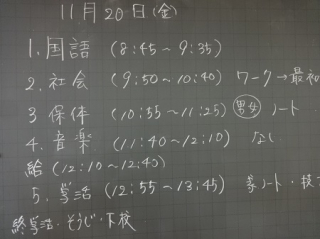 11月20日(金)
1.国語 (8:45~9:35)
2.社会 (9:50~10:40) ワーク→最初
3 保体 (10:55~11:25) 男女 ノート
4.音楽 (11:40~12:10) なし
給 (12:10~12:40)
5.学活 (12:55~13:45) 学ノート・
終学活・そうじ・下校